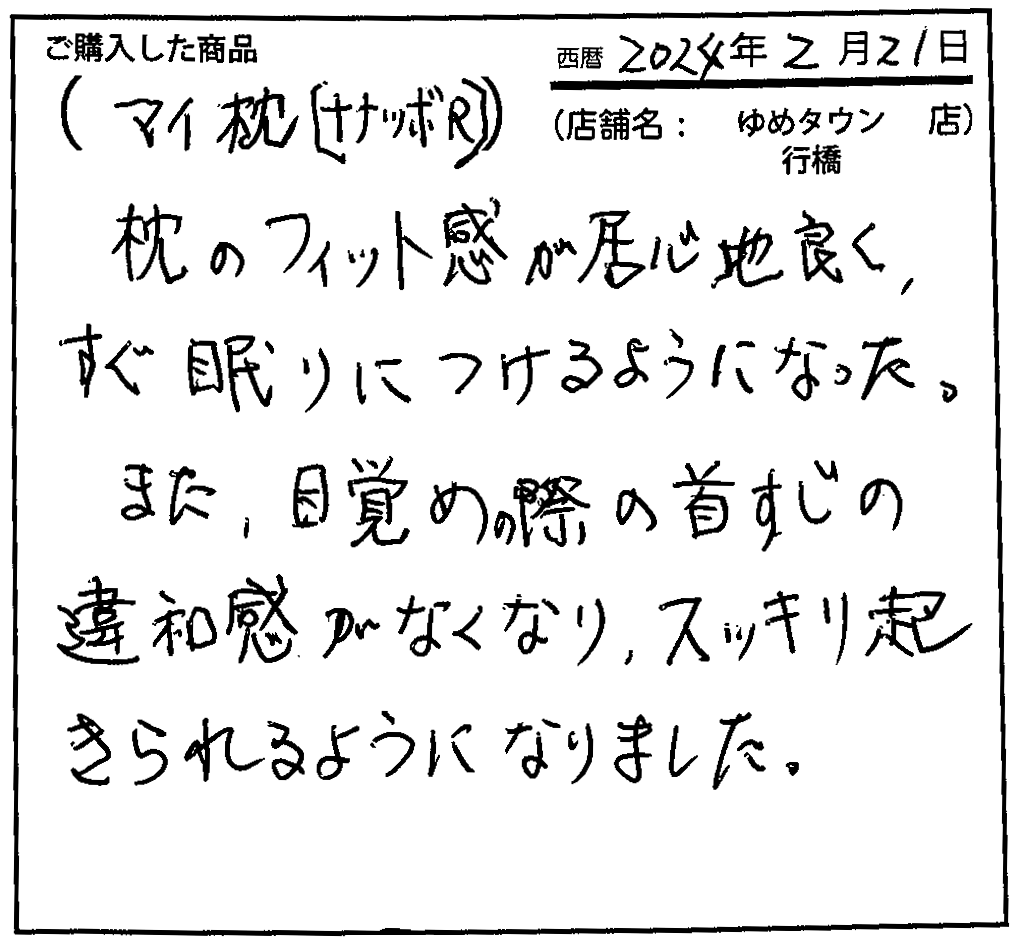 ご購入した商品
西暦 2024年2月21日
(マイ枕[ナナッボR])
(店舗名: ゆめタウン 店)
行橋
枕のフィット感が居心地良く,
すぐ眠りにつけるようになった。
また, 目覚めの際の首すじの
違和感がなくなり, スッキリ起
きられるようになりました。